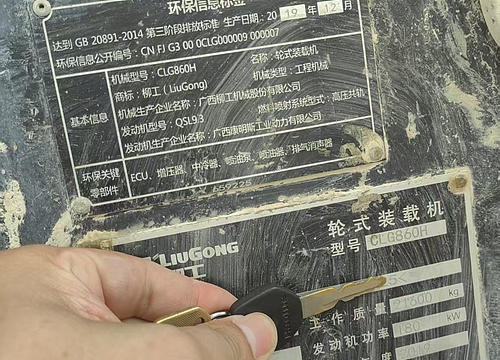 环保信息标签
达到 GB 20891-2014 第三阶段排放标准 生产日期：2019年12月
环保信息公开编号：CN FJ G3 00 0CLG000009 000007
基本信息
机械型号：CLG860H 名称：轮式装载机
商标：柳工（LiuGong） 机械类型：工程机械
机械生产企业名称：广西柳工机械股份有限公司
发动机型号：QSL9.3 燃料喷射系统型式：高压共轨
发动机生产企业名称：广西康明斯工业动力有限公司
环保关键零部件
ECU、增压器、中冷器、喷油泵、喷油器、排气消声器
659225
LIUGONG
工
轮式装载机
型号 CLG860H
工作质量 kg
发动机功率 180 kW